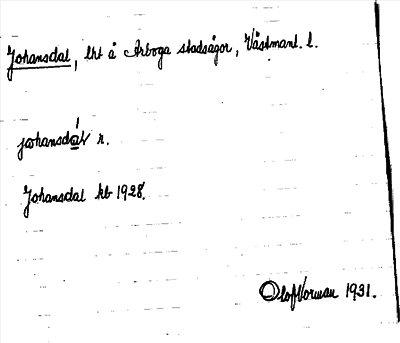 Johansdal, lht å Arboga stadsägor, Västmanl. l.
johansdál r.
Johansdal kb 1928.
Olof Norman 1931.